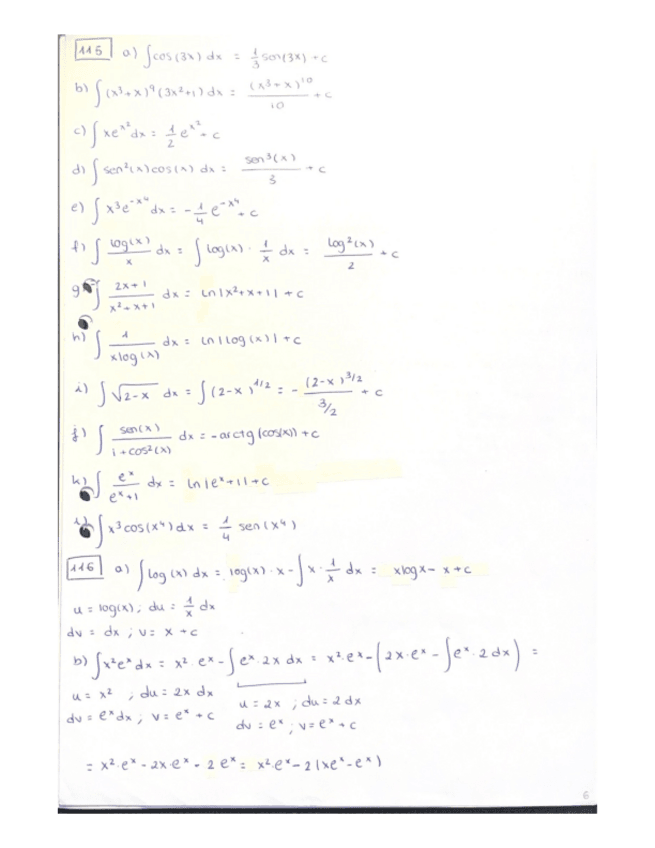 115 a) ∫cos(3x) dx = 1/3 sen(3x) + c
b) ∫(x³+x)⁹(3x²+1) dx = (x³+x)¹⁰/10 + c
c) ∫xe^(x²) dx = 1/2 e^(x²) + c
d) ∫sen²(x)cos(x) dx = sen³(x)/3 + c
e) ∫x³e^(-x⁴) dx = -1/4 e^(-x⁴) + c
f) ∫log(x)/x dx = ∫log(x) · 1/x dx = log²(x)/2 + c
g) ∫(2x+1)/(x²+x+1) dx = ln|x²+x+1| + c
h) ∫1/(xlog(x)) dx = ln|log(x)| + c
i) ∫√(2-x) dx = ∫(2-x)^(1/2) = - (2-x)^(3/2)/(3/2) + c
j) ∫sen(x)/(1+cos²(x)) dx = -arctg(cos(x)) + c
k) ∫e^x/(e^x+1) dx = ln|e^x+1| + c
∫x³cos(x⁴) dx = 1/4 sen(x⁴)
116 a) ∫log(x) dx = log(x)·x - ∫x·1/x dx = xlogx - x + c
u = log(x); du = 1/x dx
dv = dx ; v = x + c
b) ∫x²e^x dx = x²·e^x - ∫e^x·2x dx = x²·e^x - (2x·e^x - ∫e^x·2dx) =
u = x² ; du = 2x dx u = 2x ; du = 2dx
dv = e^x dx ; v = e^x + c dv = e^x ; v = e^x + c
= x²·e^x - 2x·e^x - 2e^x = x²·e^x - 2(xe^x - e^x)
6